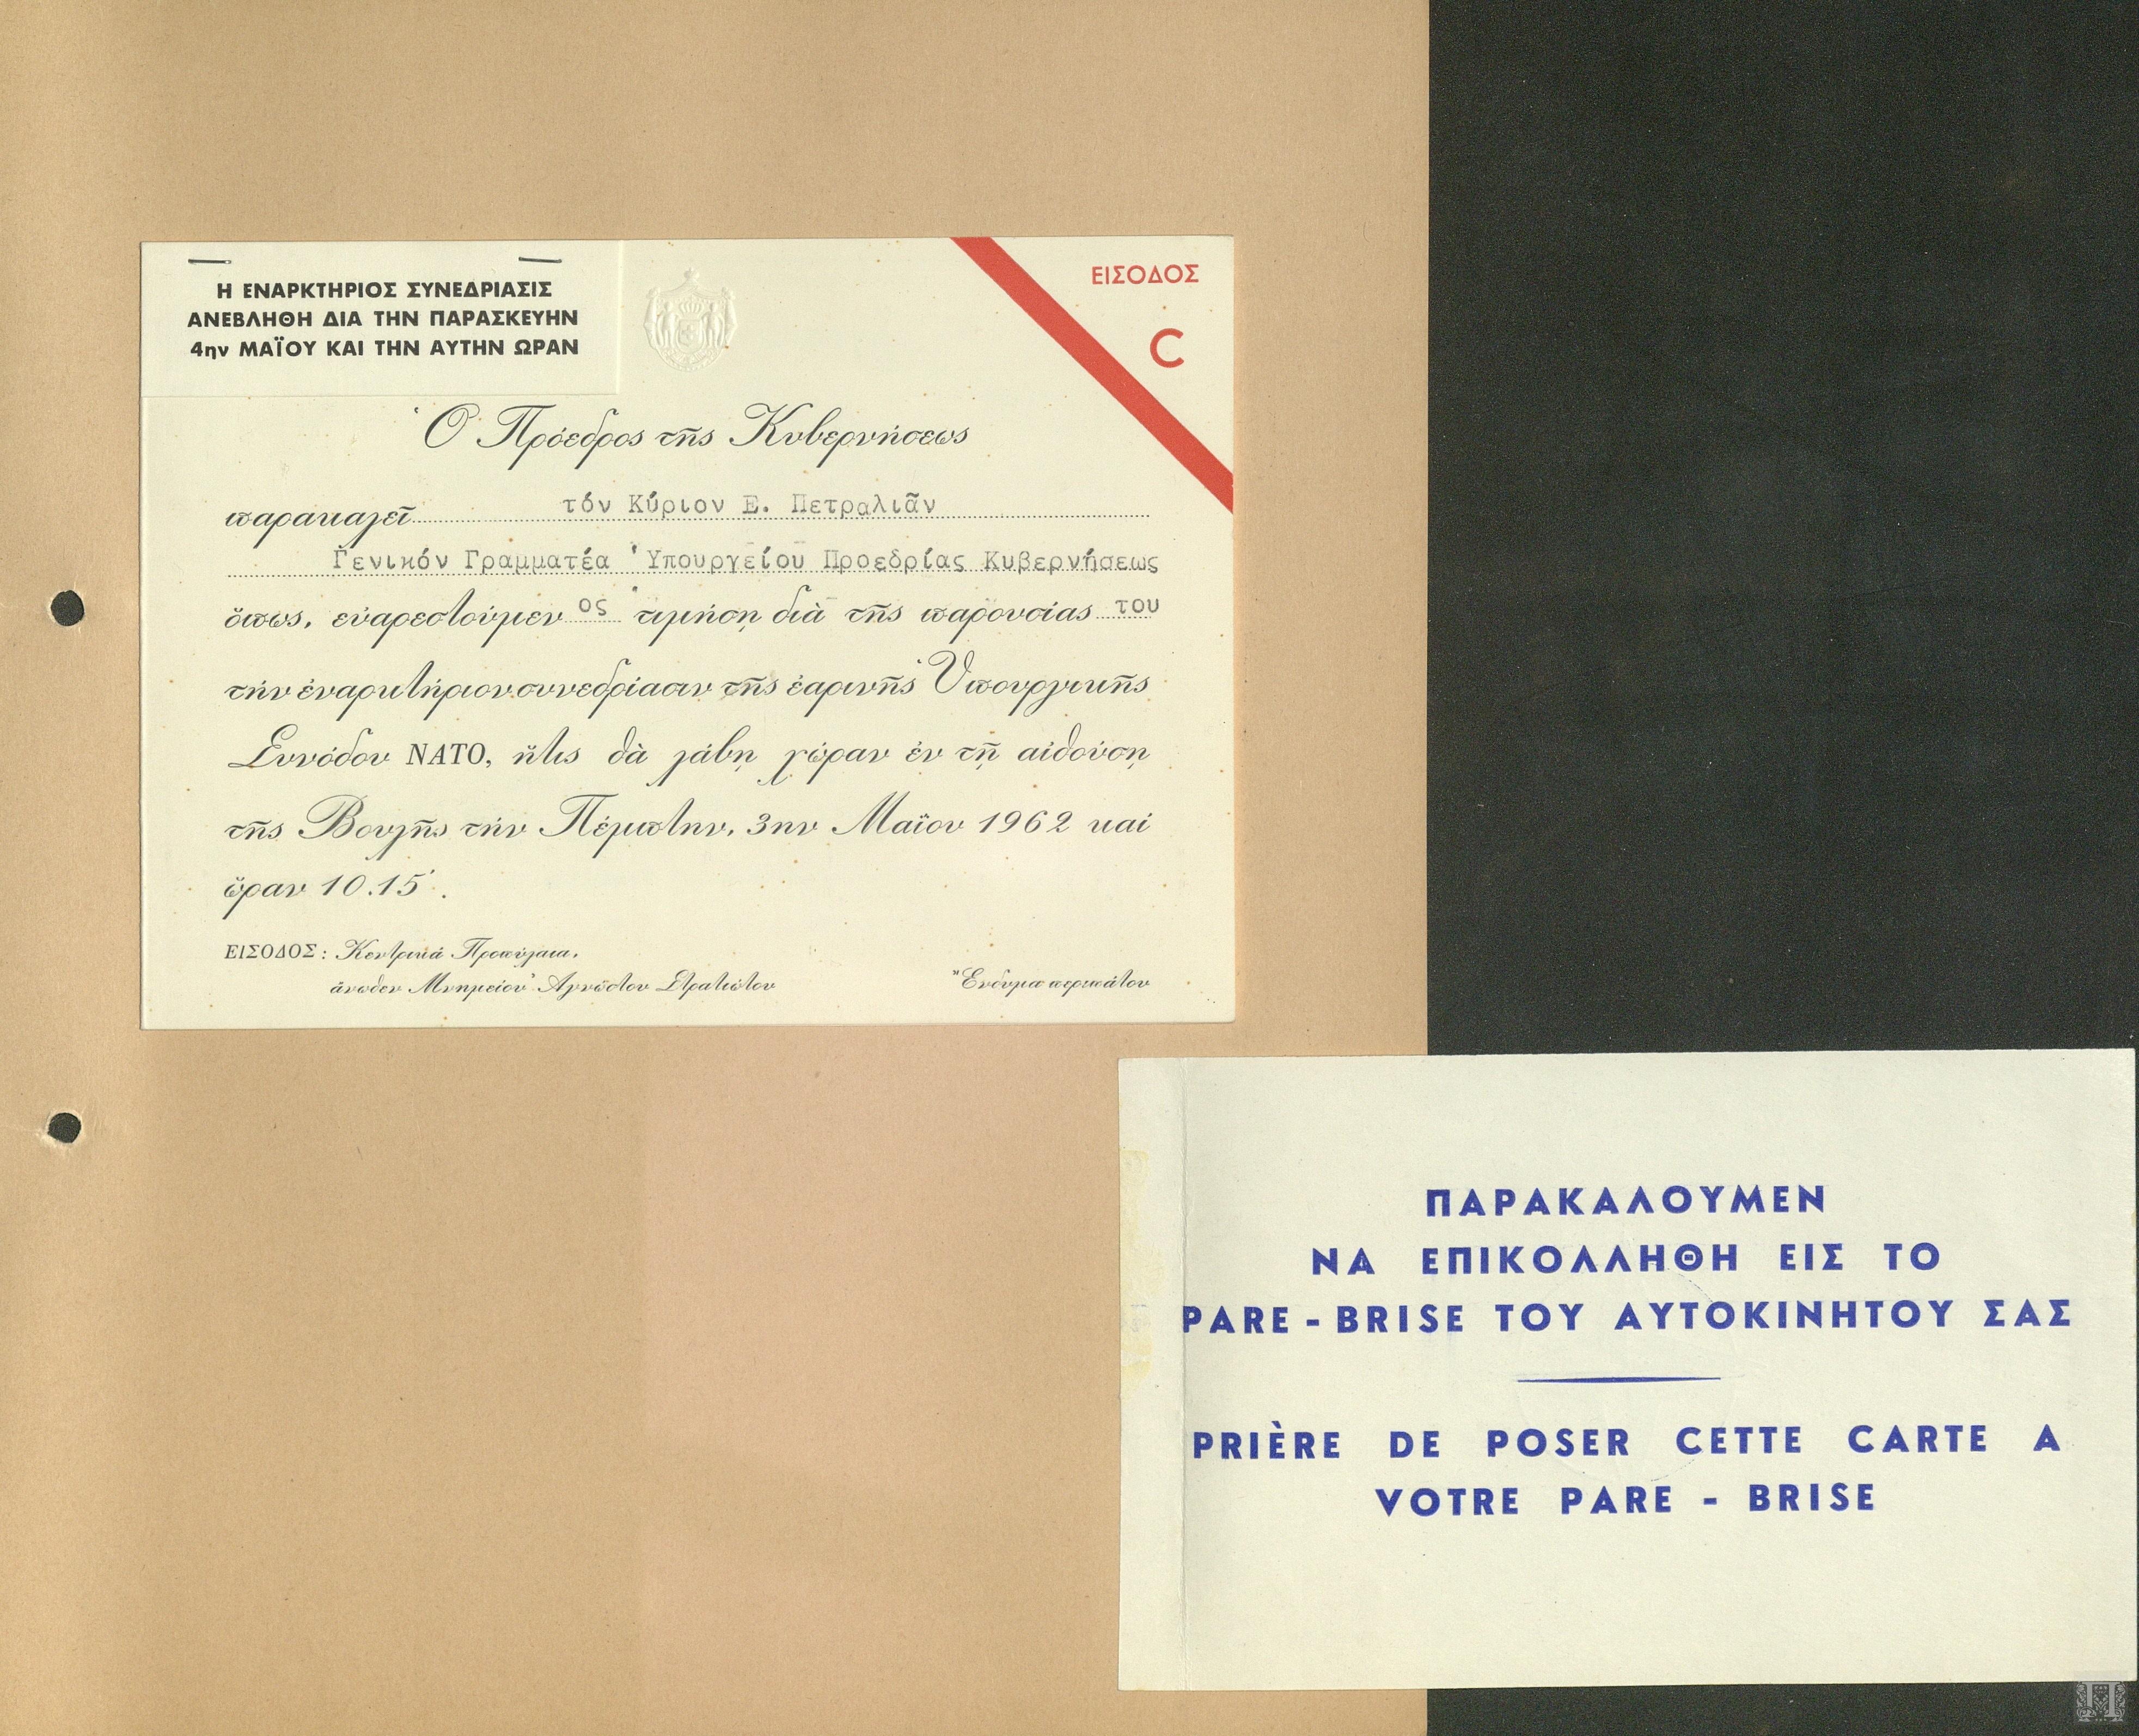 Η ΕΝΑΡΚΤΗΡΙΟΣ ΣΥΝΕΔΡΙΑΣΙΣ
ΑΝΕΒΛΗΘΗ ΔΙΑ ΤΗΝ ΠΑΡΑΣΚΕΥΗΝ
4ην ΜΑΪΟΥ ΚΑΙ ΤΗΝ ΑΥΤΗΝ ΩΡΑΝ
ΕΙΣΟΔΟΣ
C
Ὁ Πρόεδρος τῆς Κυβερνήσεως
παρακαλεῖ τόν Κύριον Ε. Πετραλιᾶν
Γενικόν Γραμματέα Ὑπουργείου Προεδρίας Κυβερνήσεως
ὅπως, εὐαρεστούμεν ος τιμήσῃ διὰ τῆς παρουσίας του
τήν ἐναρκτήριον συνεδρίασιν τῆς ἐαρινῆς Ὑπουργικῆς
Συνόδου NATO, ἥτις θὰ λάβῃ χώραν ἐν τῇ αἰθούσῃ
τῆς Βουλῆς τήν Πέμπτην, 3ην Μαΐου 1962 καί
ὥραν 10.15΄.
ΕΙΣΟΔΟΣ: Κεντρικά Προπύλαια,
ἄνωθεν Μνημείου Ἀγνώστου Στρατιώτου
Ἔνδυμα περιπάτου
ΠΑΡΑΚΑΛΟΥΜΕΝ
ΝΑ ΕΠΙΚΟΛΛΗΘΗ ΕΙΣ ΤΟ
PARE - BRISE ΤΟΥ ΑΥΤΟΚΙΝΗΤΟΥ ΣΑΣ
PRIÈRE DE POSER CETTE CARTE A
VOTRE PARE - BRISE